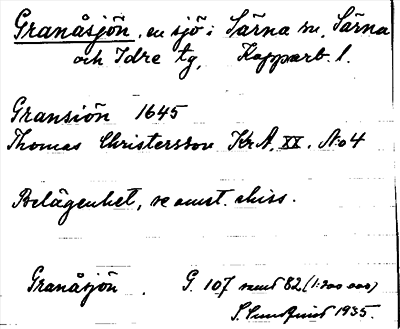 Granåsjön, en sjö i Särna sn, Särna
och Idre tg, Kopparb. l.
Gransiön 1645
Thomas Christersson Kr.A. XX. No 4
Belägenhet, se omst. skiss.
Granåsjön. G. 107 samt 82 (1:200 000)
1935.